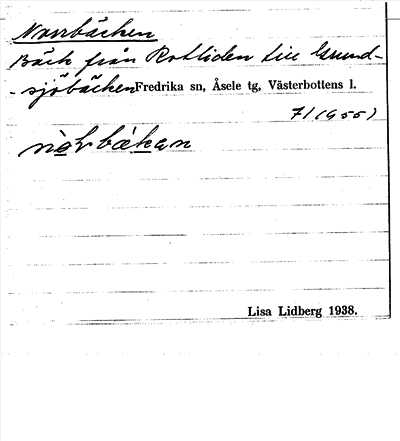 Norrbäcken
Bäck från Rotliden till Grund-
-sjöbäcken Fredrika sn, Åsele tg, Västerbottens l.
7/(955)
Lisa Lidberg 1938.